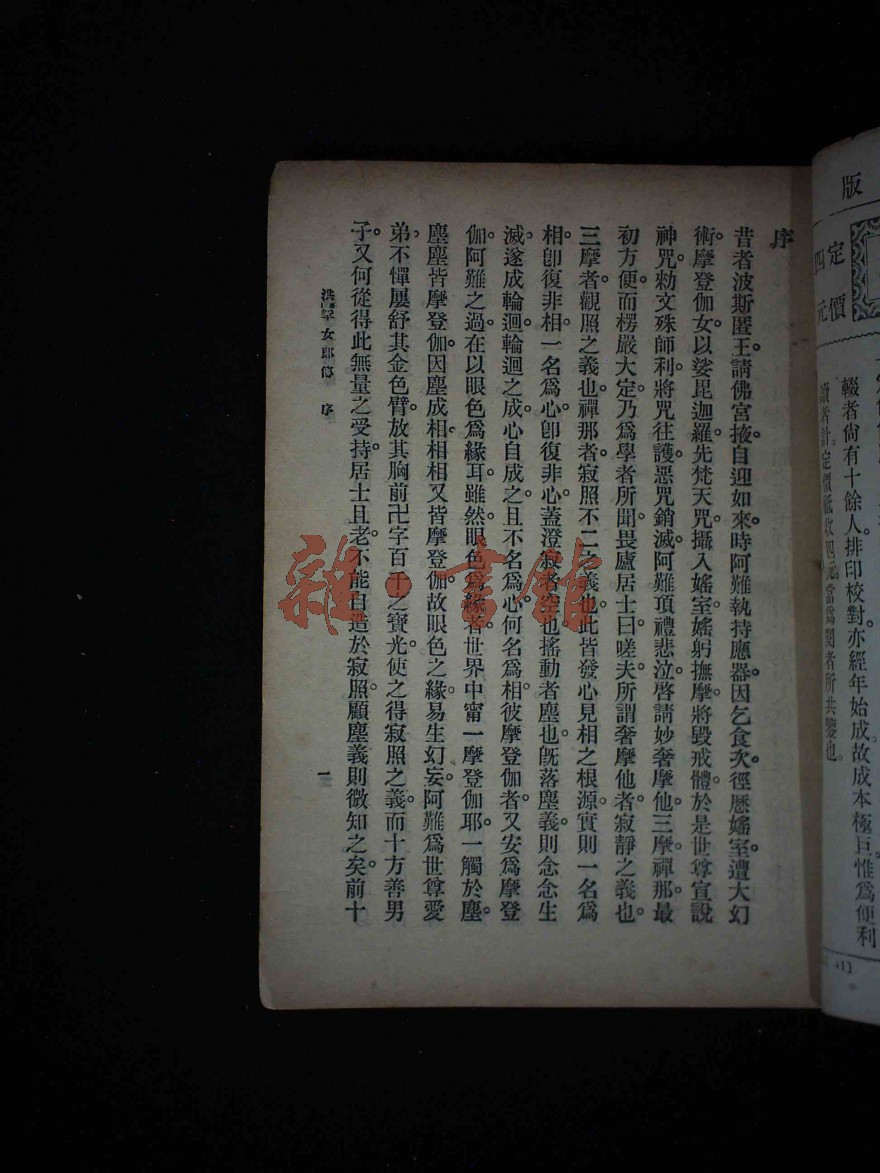 序
昔者波斯匿王。請佛宮掖。自迎如來。時阿難執持應器。因乞食次。徑歷婬室。遭大幻
術。摩登伽女。以娑毘迦羅先梵天咒。攝入婬室。婬躬撫摩。將毀戒體。於是世尊宣說
神咒。勑文殊師利。將咒往護。惡咒銷滅。阿難頂禮悲泣。啓請妙奢摩他。三摩。禪那。最
初方便。而楞嚴大定。乃爲學者所聞。畏廬居士曰。嗟夫。所謂奢摩他者。寂靜之義也。
三摩者。觀照之義也。禪那者。寂照不二之義也。此皆發心見相之根源。實則一名爲
相。卽復非相。一名爲心。卽復非心。蓋澄寂者空也。搖動者塵也。旣落塵義。則念念生
滅。遂成輪迴。輪迴之成。心自成之。且不名爲心。何名爲相。彼摩登伽者。又安爲摩登
伽。阿難之過。在以眼色爲緣耳。雖然。眼色爲緣者。世界中甯一摩登伽耶。一觸於塵。
塵塵皆摩登伽。因塵成相。相相又皆摩登伽。故眼色之緣。易生幻妄。阿難爲世尊愛
弟。不憚屢舒其金色臂。放其胸前卍字百千之寶光。使之得寂照之義。而十方善男
子。又何從得此無量之受持。居士且老。不能自造於寂照。顧塵義則微知之矣。前十
洪罕女郎傳 序
一
版
定價
四元
輟者尚有十餘人。排印校對。亦經年始成。故成本極巨。惟爲便利
讀者計。定價祇收四元。當爲閱者所共鑒也。
雜·書館